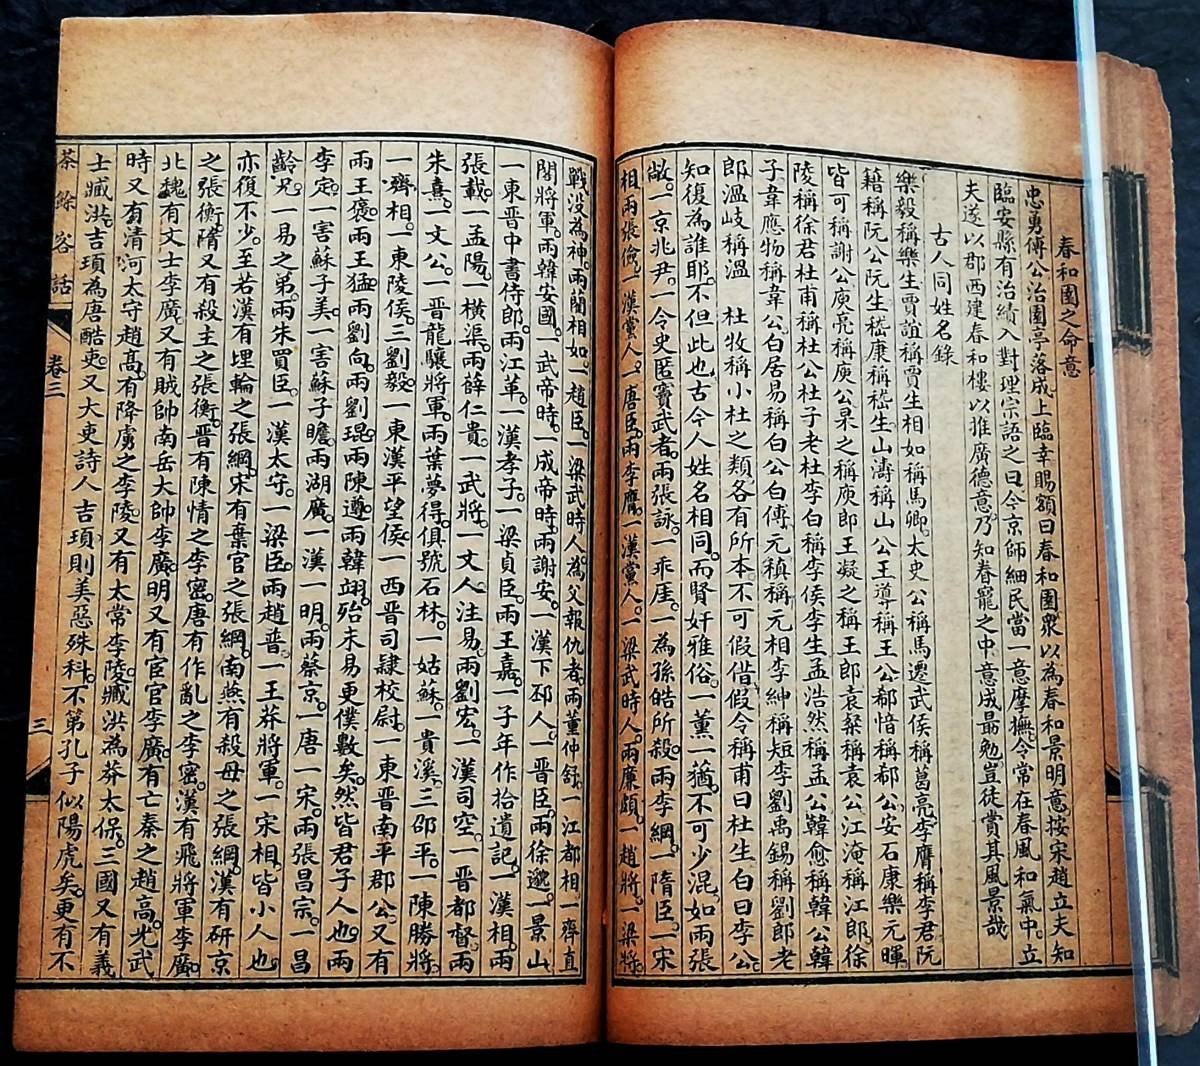 春和園之命意
忠勇傅公治園亭落成上臨幸賜額曰春和園衆以為春和景明意按宋趙立夫知
臨安縣有治績入對理宗語之曰今京師細民當一意摩撫今常在春風和氣中立
夫遂以郡西建春和樓以推廣德意乃知眷寵之中意成最勉豈徒賞其風景哉
古人同姓名錄
樂毅稱樂生賈誼稱賈生相如稱馬卿太史公稱馬遷武侯稱葛亮李膺稱李君阮
籍稱阮公阮生嵇康稱嵇生山濤稱山公王導稱王公郗愔稱郗公安石康樂元暉
皆可稱謝公庾亮稱庾公杲之稱庾郎王凝之稱王郎袁粲稱袁公江淹稱江郎徐
陵稱徐君杜甫稱杜公杜子老杜李白稱李侯李生孟浩然稱孟公韓愈稱韓公韓
子韋應物稱韋公白居易稱白公白傅元稹稱元相李紳稱短李劉禹錫稱劉郎老
郎溫岐稱溫 杜牧稱小杜之類各有所本不可假借假令稱甫曰杜生白曰李公
知復為誰耶不但此也古今人姓名相同而賢奸雅俗一薰一蕕不可少混如兩張
敞一京兆尹一令史匿竇武者兩張詠一乖厓一為孫皓所殺兩李綱一隋臣一宋
相兩張儉一漢黨人一唐臣兩李膺一漢黨人一梁武時人兩廉頗一趙將一梁將
戰沒為神兩藺相如一趙臣一梁武時人為父報仇者兩董仲舒一江都相一齊直
閣將軍兩韓安國一武帝時一成帝時兩謝安一漢下邳人一晋臣兩徐邈一景山
一東晋中書侍郎兩江革一漢孝子一梁貞臣兩王嘉一子年作拾遺記一漢相兩
張載一孟陽一橫渠兩薛仁貴一武將一文人注易兩劉宏一漢司空一晋都督兩
朱熹一文公一晋龍驤將軍兩葉夢得俱號石林一姑蘇一貴溪三邵平一陳勝將
一齊相一東陵侯三劉毅一東漢平望侯一西晋司隸校尉一東晋南平郡公又有
兩王褒兩王猛兩劉向兩劉琨兩陳遵兩韓翃殆未易更僕數矣然皆君子人也兩
李定一害蘇子美一害蘇子瞻兩湖廣一漢一明兩蔡京一唐一宋兩張昌宗一昌
齡兄一易之弟兩朱買臣一漢太守一梁臣兩趙普一王莽將軍一宋相皆小人也
亦復不少至若漢有埋輪之張綱宋有棄官之張綱南燕有殺母之張綱漢有研京
之張衡隋又有殺主之張衡晋有陳情之李密唐有作亂之李密漢有飛將軍李廣
北魏有文士李廣又有賊帥南岳大帥李廣明又有宦官李廣有亡秦之趙高光武
時又有清河太守趙高有降虜之李陵又有太常李陵臧洪為莽太保三國又有義
士臧洪吉頊為唐酷吏又大吏詩人吉頊則美惡殊科不第孔子似陽虎矣更有不
茶餘客話 卷三 三